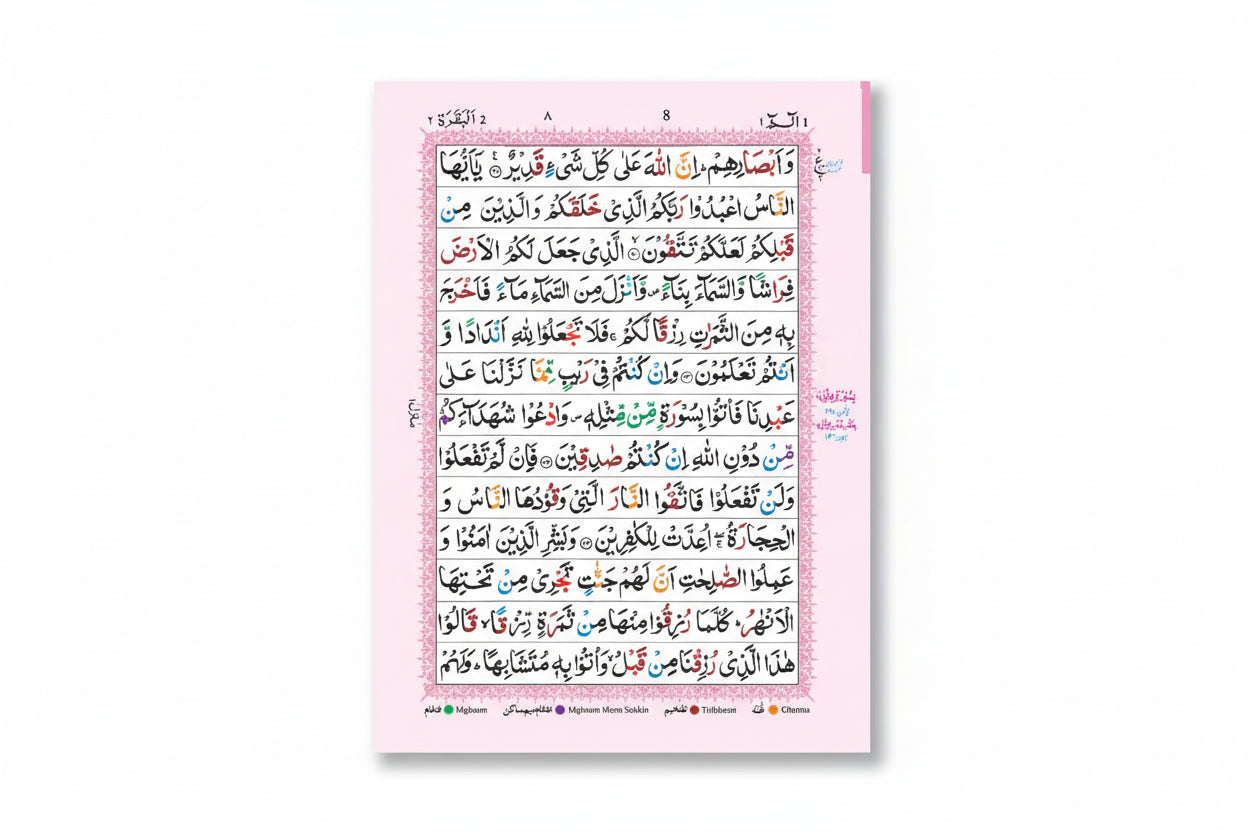 1 الٓمّٓ ١ 8 ٨ 2 اَلْبَقَرَة ٢
وَاَبْصَارِهِمْ ؕ اِنَّ اللّٰهَ عَلٰى كُلِّ شَیْءٍ قَدِيْرٌ ۟ يٰۤاَيُّهَا
النَّاسُ اعْبُدُوْا رَبَّكُمُ الَّذِیْ خَلَقَكُمْ وَالَّذِيْنَ مِنْ
قَبْلِكُمْ لَعَلَّكُمْ تَتَّقُوْنَ ۟ الَّذِیْ جَعَلَ لَكُمُ الْاَرْضَ
فِرَاشًا وَّالسَّمَآءَ بِنَآءً ۪ وَّاَنْزَلَ مِنَ السَّمَآءِ مَآءً فَاَخْرَجَ
بِهٖ مِنَ الثَّمَرٰتِ رِزْقًا لَّكُمْ ۚ فَلَا تَجْعَلُوْا لِلّٰهِ اَنْدَادًا وَّ
اَنْتُمْ تَعْلَمُوْنَ ۟ وَاِنْ كُنْتُمْ فِیْ رَيْبٍ مِّمَّا نَزَّلْنَا عَلٰى
عَبْدِنَا فَاْتُوْا بِسُوْرَةٍ مِّنْ مِّثْلِهٖ ۪ وَادْعُوْا شُهَدَآءَكُمْ
مِّنْ دُوْنِ اللّٰهِ اِنْ كُنْتُمْ صٰدِقِيْنَ ۟ فَاِنْ لَّمْ تَفْعَلُوْا
وَلَنْ تَفْعَلُوْا فَاتَّقُوا النَّارَ الَّتِیْ وَقُوْدُهَا النَّاسُ وَ
الْحِجَارَةُ ۖۚ اُعِدَّتْ لِلْكٰفِرِيْنَ ۟ وَبَشِّرِ الَّذِيْنَ اٰمَنُوْا وَ
عَمِلُوا الصّٰلِحٰتِ اَنَّ لَهُمْ جَنّٰتٍ تَجْرِیْ مِنْ تَحْتِهَا
الْاَنْهٰرُ ؕ كُلَّمَا رُزِقُوْا مِنْهَا مِنْ ثَمَرَةٍ رِّزْقًا ۙ قَالُوْا
هٰذَا الَّذِیْ رُزِقْنَا مِنْ قَبْلُ ۙ وَاُتُوْا بِهٖ مُتَشَابِهًا ؕ وَلَهُمْ
Mgbaam Mghoam Menn Sokkin Tisfbbesm Citenma